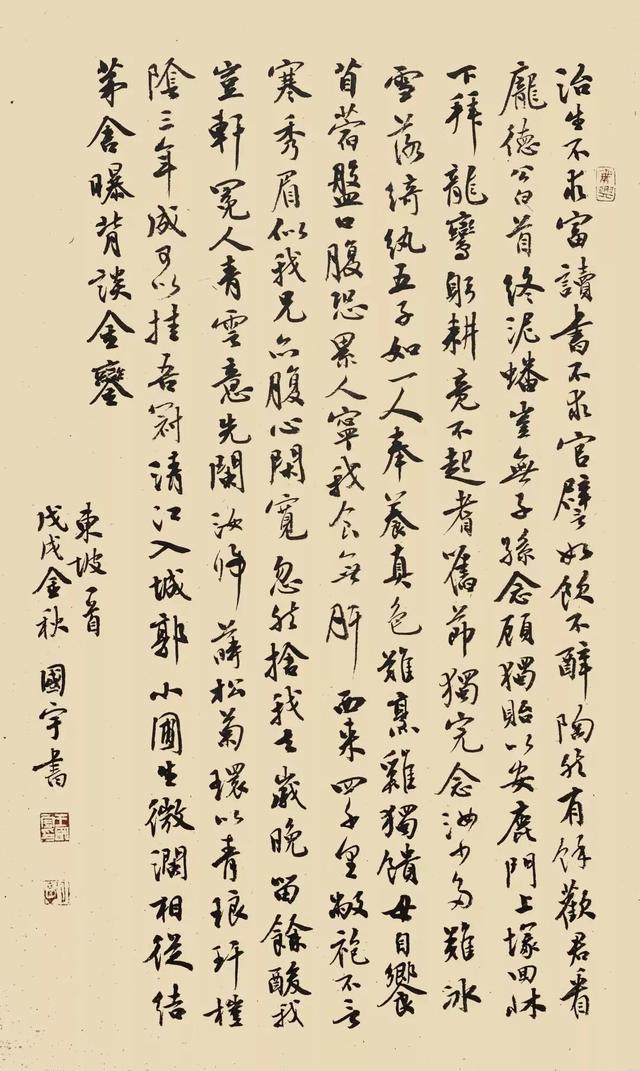 治生不求富讀書不求官譬如飲不醉陶然有餘歡君看
龐德公白首終泥蟠豈無子孫念顧獨貽以安鹿門上塚回牀
下拜龍鸞躬耕竟不起耆舊節獨完念汝少多難冰
雪落綺紈五子如一人奉養真色難烹雞獨饋母自饗
苜蓿盤口腹恐累人寧我食無肝西來四千里敝袍不言
寒秀眉似我兄亦腹心閑寬忽然捨我去歲晚留餘酸我
豈軒冕人青雲意先闌汝歸蒔松菊環以青琅玕榿
陰三年成可以挂吾冠清江入城郭小圃生微瀾相從結
茅舍曝背談金鑾
東坡一首
戊戌金秋國宇書